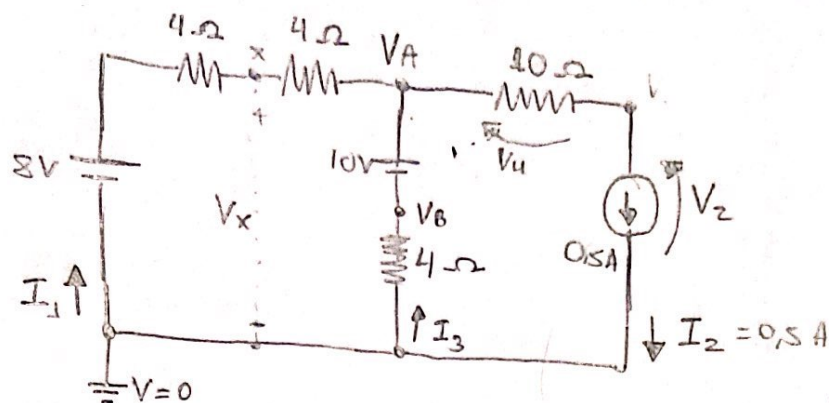 4Ω x 4Ω VA 10Ω
+
8V 10V V4
Vx VB V2
4Ω 0,5A
I1 I3 I2 = 0,5 A
-
V=0